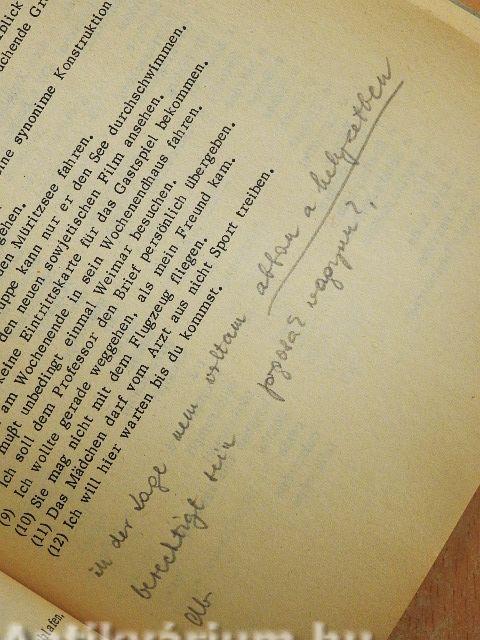 rblick
uchende Gr
ine synonime Konstruktion
gehen.
den Müritzsee fahren.
uppe kann nur er den See durchschwimmen.
den neuen sowjetischen Film ansehen.
keine Eintrittskarte für das Gastspiel bekommen.
am Wochenende in sein Wochenendhaus fahren.
mußt unbedingt einmal Weimar besuchen.
Ich soll dem Professor den Brief persönlich übergeben.
(9) Ich wollte gerade weggehen, als mein Freund kam.
(10) Sie mag nicht mit dem Flugzeug fliegen.
(11) Das Mädchen darf vom Arzt aus nicht Sport treiben.
(12) Ich will hier warten bis du kommst.
in der Lage nem voltam abban a helyzetben
berechtigt sein
vagyun?,
hlafen,
Antikvárium.hu